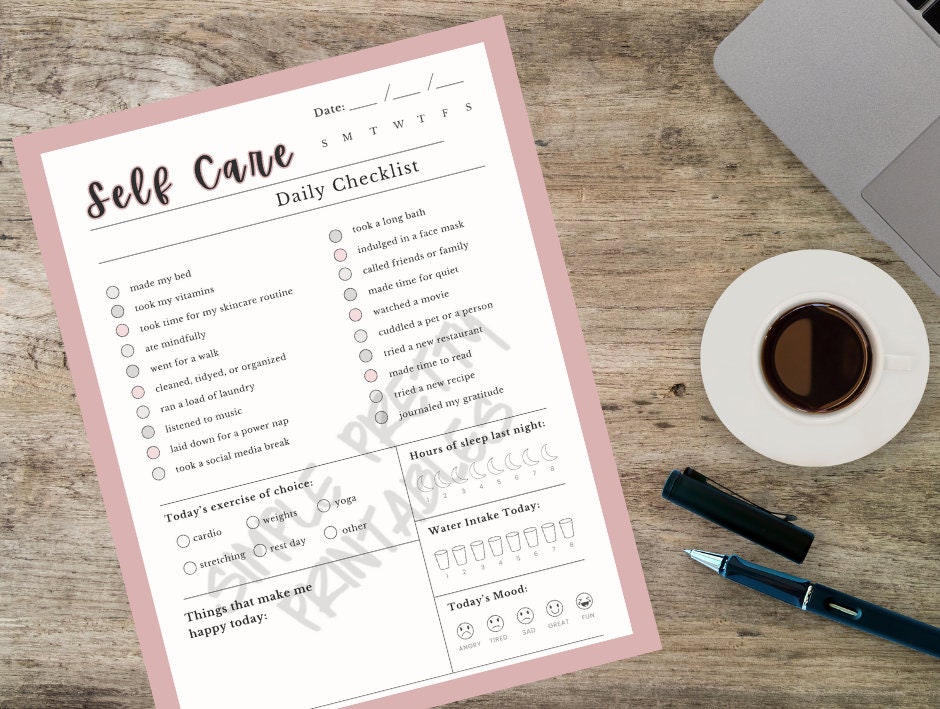 Date: ___ / ___ / ___
S M T W T F S
Self Care
Daily Checklist
made my bed
took my vitamins
took time for my skincare routine
ate mindfully
went for a walk
cleaned, tidyed, or organized
ran a load of laundry
listened to music
laid down for a power nap
took a social media break
took a long bath
indulged in a face mask
called friends or family
made time for quiet
watched a movie
cuddled a pet or a person
tried a new restaurant
made time to read
tried a new recipe
journaled my gratitude
Today's exercise of choice:
cardio weights yoga
stretching rest day other
Things that make me
happy today:
Hours of sleep last night:
1 2 3 4 5 6 7 8
Water Intake Today:
1 2 3 4 5 6 7 8
Today's Mood:
ANGRY TIRED SAD GREAT FUN
SIMPLE PRETTY
PRINTABLES